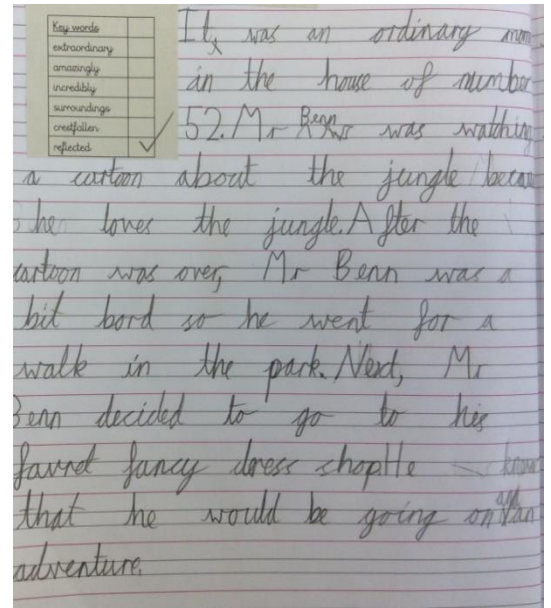 Key words
extraordinary
amazingly
incredibly
surroundings
crestfallen
reflected
It was an ordinary
in the house of number
52. Mr Benn was watching
a cartoon about the jungle becau
he loves the jungle. After the
cartoon was over, Mr Benn was a
bit bord so he went for a
walk in the park. Next, Mr
Benn decided to go to his
favret fancy dress shop He know
that he would be going on an
adventure.